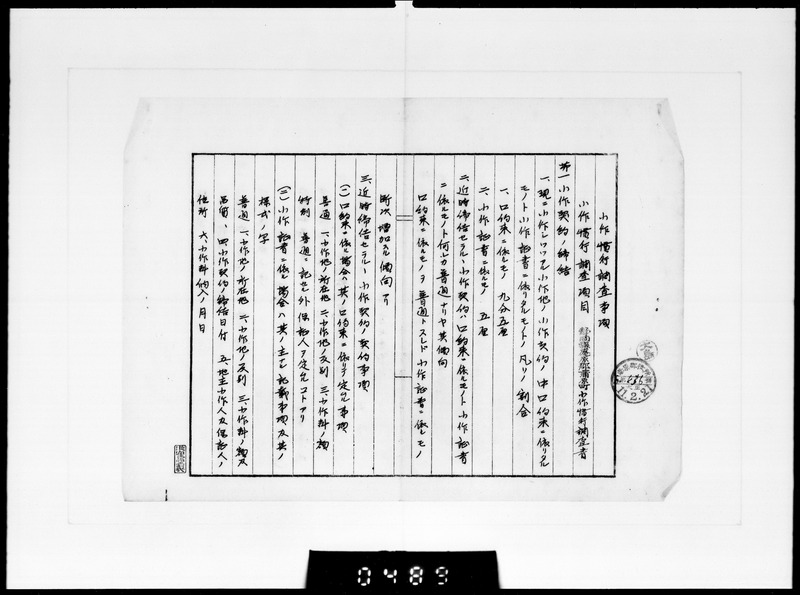 小作慣行調査事項
小作慣行調査項目 小作慣行調査書
第一 小作契約ノ締結
一、現ニ小作シツツアル小作地ノ小作契約ノ中口約束ニ依リタル
モノト小作証書ニ依リタルモノトノ凡ソノ割合
一、口約束ニ依ルモノ 九分五厘
二、小作証書ニ依ルモノ 五厘
二、近時締結セラルヽ小作契約ハ口約束ニ依ルモノト小作証書
ニ依ルモノト何レカ普通ナリヤ其傾向
口約束ニ依ルモノヲ普通トスレド小作証書ニ依ルモノ
漸次増加スル傾向アリ
三、近時締結セラルヽ小作契約ノ契約事項
(一)口約束ニ依ル場合ハ其ノ口約束ニ依リテ定ムル事項
普通 一、小作地ノ所在地 二、小作地ノ反別 三、小作料ノ額
特別 普通ニ記セル外保証人ヲ定ムルコトアリ
(二)小作証書ニ依ル場合ハ其ノ主ナル記載事項及其ノ
様式ノ写
普通 一、小作地ノ所在地 二、小作地ノ反別 三、小作料ノ額及
品質 四、小作契約ノ締結日付 五、地主小作人及保証人ノ
住所 六、小作料納入ノ月日
11.2.2
0489